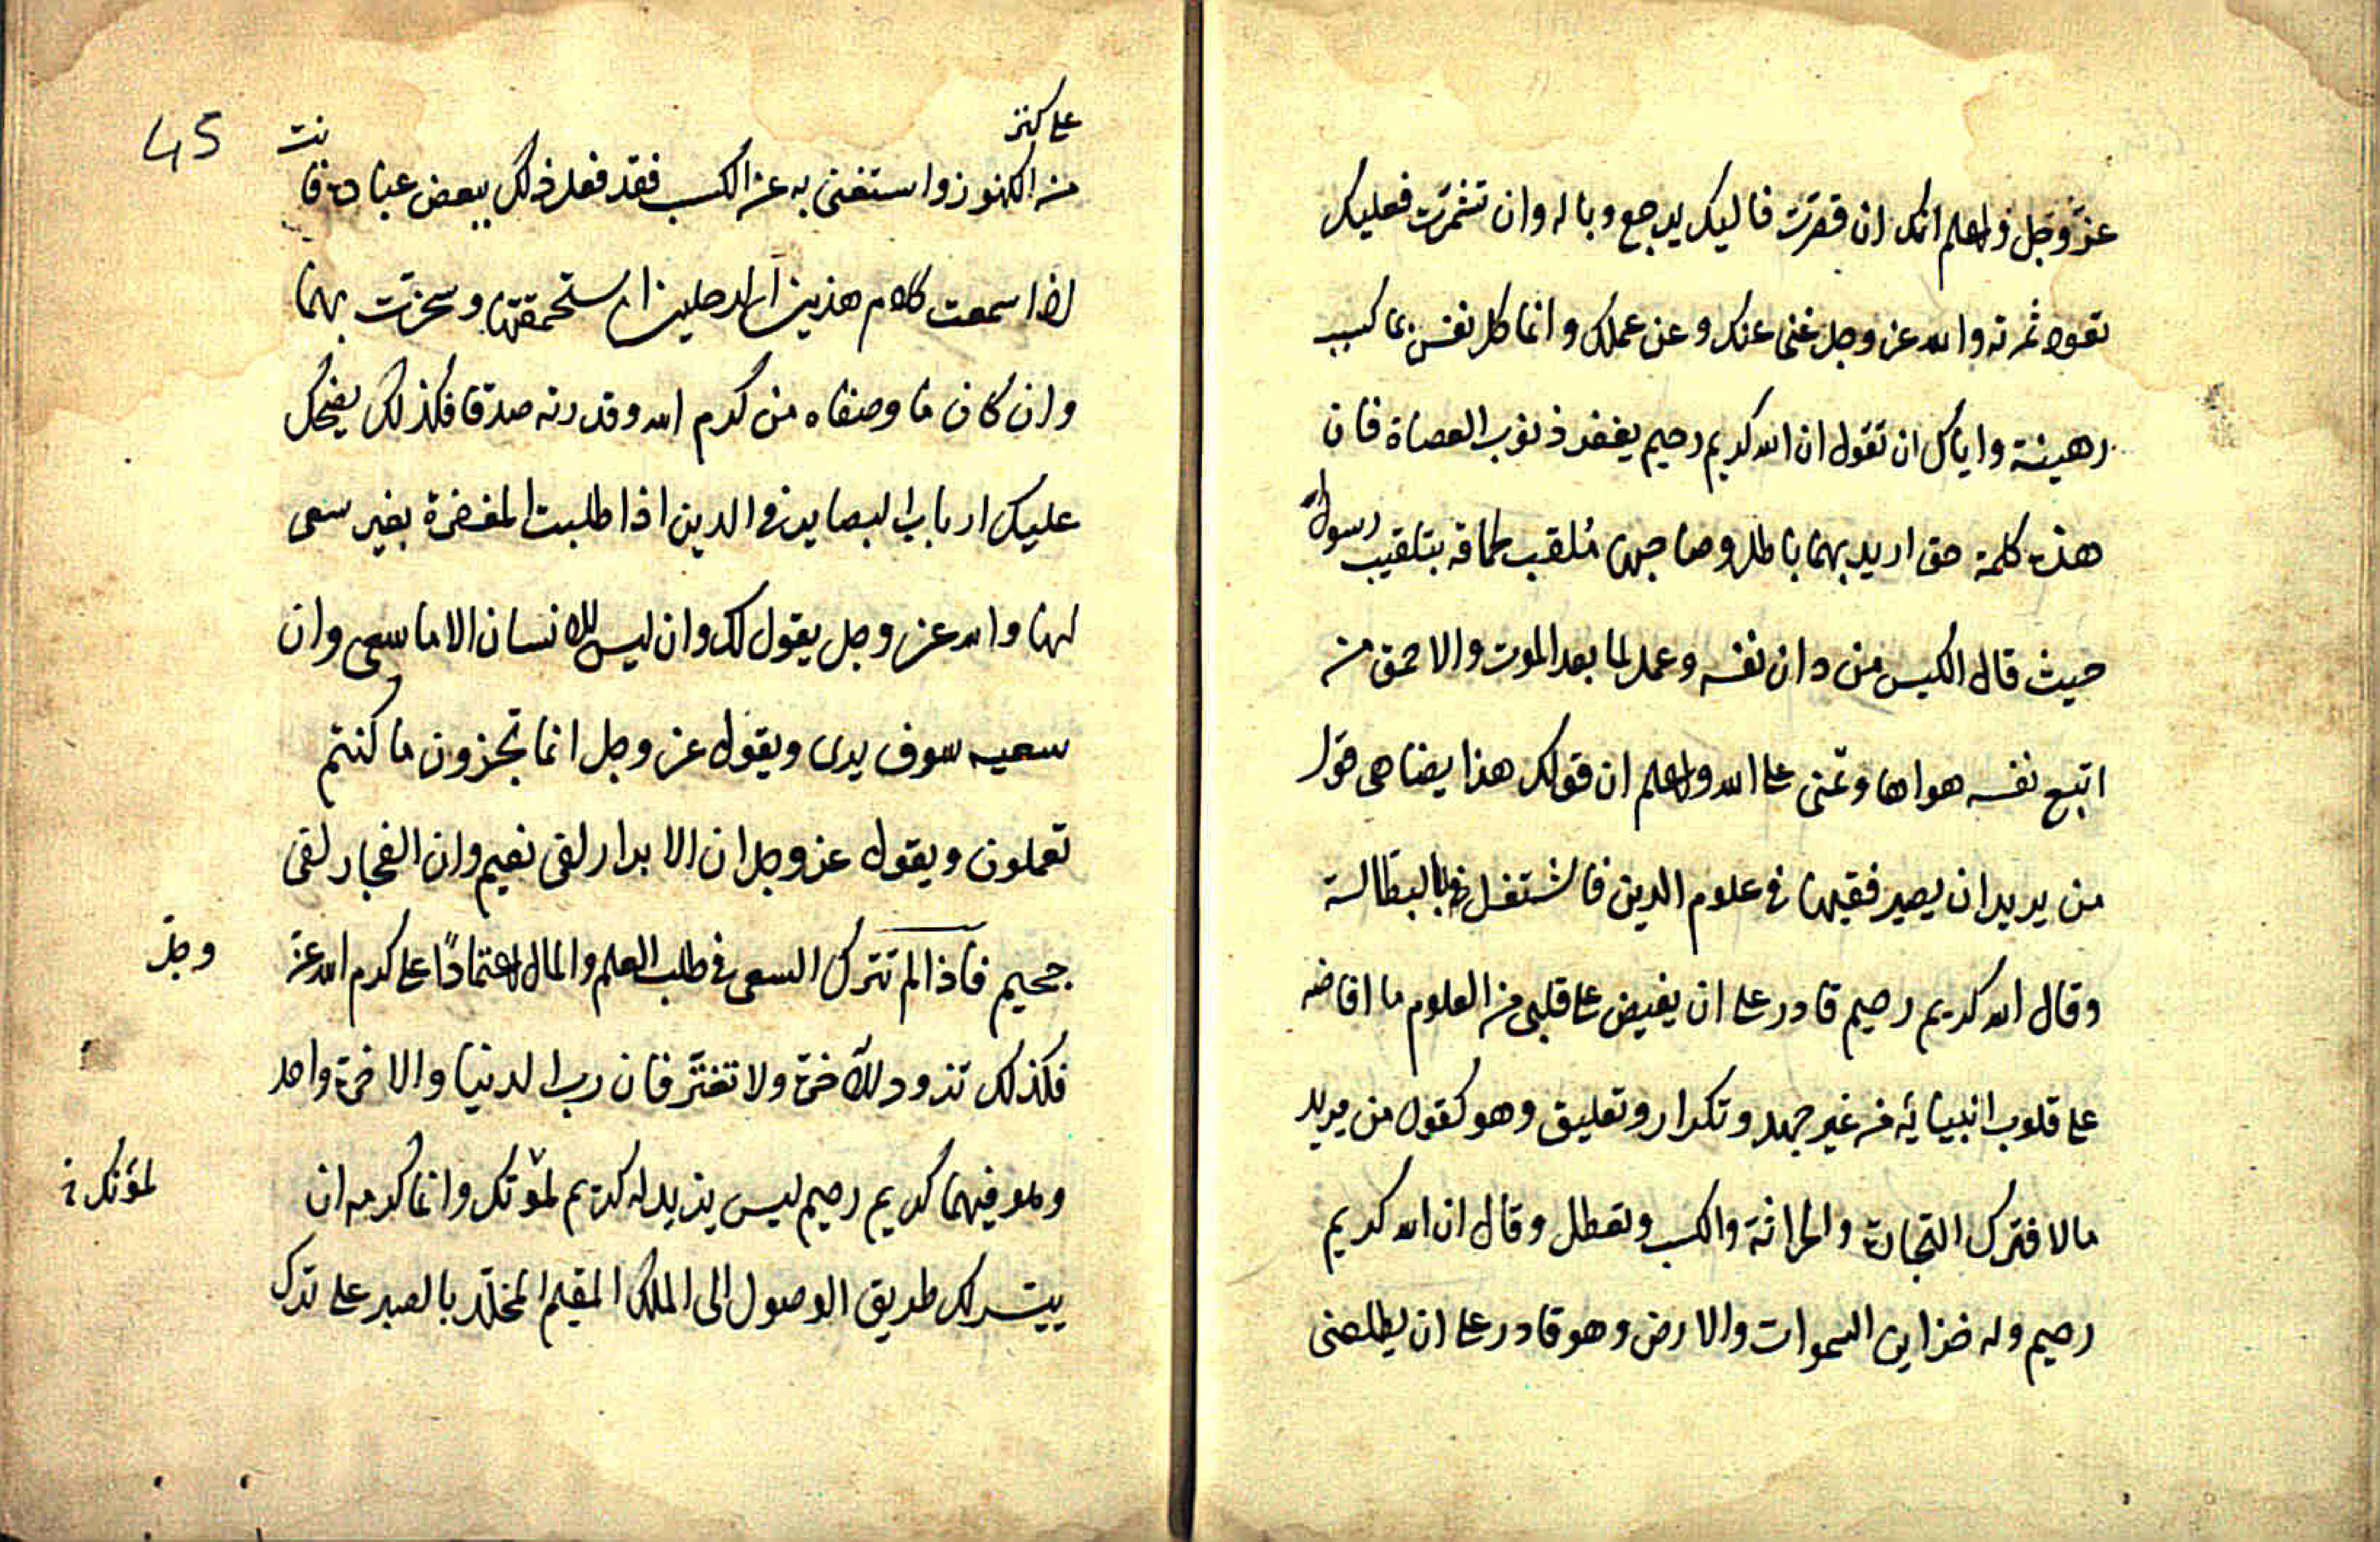 عز وجل واعلم انك ان قصرت فاليك يرجع وباله وان تشمرت فعليك
تعود ثمرته والله عز وجل غنى عنك وعن عملك وانما كل نفس بما كسبت
رهينة واياك ان تقول ان الله كريم رحيم يغفر ذنوب العصاة فان
هذه كلمة حق اريد بها باطل وصاحبها ملقب بحماقة بتلقيب رسول الله
حيث قال الكيس من دان نفسه وعمل لما بعد الموت والاحمق من
اتبع نفسه هواها وتمنى على الله واعلم ان قولك هذا يضاهى قول
من يريد ان يصير فقيها فى علوم الدين فاشتغل بالبطالة
وقال الله كريم رحيم قادر على ان يفيض على قلبى من العلوم ما افاضه
على قلوب انبيائه من غير جهد وتكرار وتعليق وهو كقول من يريد
مالا فترك التجارة والحراثة والكسب وتعطل وقال ان الله كريم
رحيم وله خزاين السموات والارض وهو قادر على ان يطلعنى
45
على كنز
من الكنوز واستغنى به عن الكسب فقد فعل ذلك ببعض عباده فانت
اذا سمعت كلام هذين الرجلين استحمقتهما وسخرت بهما
وان كان ما وصفاه من كرم الله وقدرته صدقا فكذلك يضحك
عليك ارباب البصاير فى الدين اذا طلبت المغفرة بغير سعى
لها والله عز وجل يقول لك وان ليس للانسان الا ما سعى وان
سعيه سوف يرى ويقول عز وجل انما تجزون ما كنتم
تعملون ويقول عز وجل ان الابرار لفى نعيم وان الفجار لفى
جحيم فاذا لم تترك السعى فى طلب العلم والمال اعتمادًا على كرم الله عز
وجل
فكذلك تزود للآخرة ولا تغتر فان رب الدنيا والاخرة واحد
وهو فيهما كريم رحيم ليس يزيد له كريم لموتك وانما كرمه ان
لموتك
ييسر لك طريق الوصول الى الملك المقيم المخلد بالصبر على ترك